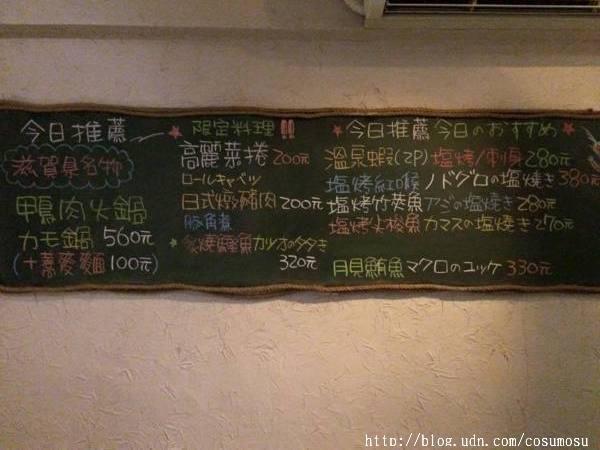 今日推薦
滋賀県名物
鴨肉火鍋
カモ鍋 560元
(+蕎麥麵 100元)
限定料理!!
高麗菜捲 200元
ロールキャベツ
日式燉豬肉 200元
豚角煮
炙燒鰹魚 カツオのタタき
320元
今日推薦 今日のおすすめ
溫泉蝦(2P) 塩烤/刺身 280元
塩烤紅喉 ノドグロの塩焼き 380元
塩烤竹筴魚 アジの塩焼き 280元
塩烤尖梭魚 カマスの塩焼き 270元
月見鮪魚 マグロのユッケ 330元
http://blog.udn.com/cosumosu